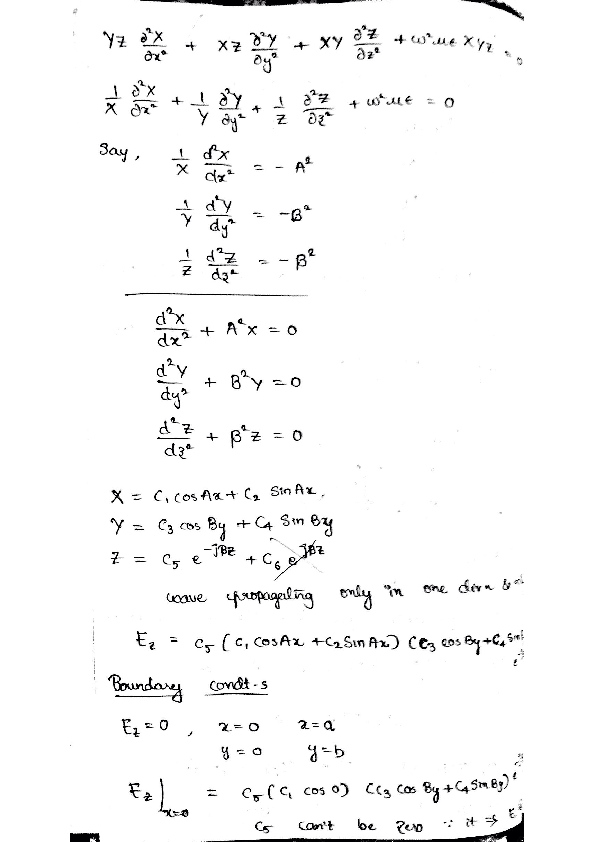 YZ ∂²X/∂x² + XZ ∂²Y/∂y² + XY ∂²Z/∂z² + ω²μϵ XYZ = 0
1/X ∂²X/∂x² + 1/Y ∂²Y/∂y² + 1/Z ∂²Z/∂z² + ω²μϵ = 0
Say, 1/X d²X/dx² = - A²
1/Y d²Y/dy² = -B²
1/Z d²Z/dz² = - β²
d²X/dx² + A²X = 0
d²Y/dy² + B²Y = 0
d²Z/dz² + β²Z = 0
X = C₁ cos Ax + C₂ Sin Ax.
Y = C₃ cos By + C₄ Sin By
Z = C₅ e^-jβz + C₆ e^jβz
wave propagating only in one dirn
E_z = C₅ (C₁ cos Ax + C₂ Sin Ax) (C₃ cos By + C₄ Sin
Boundary condt-s
E_z = 0 , x = 0 x = a
y = 0 y = b
E_z|x=0 = C₅ (C₁ cos 0) (C₃ cos By + C₄ Sin By)
C₅ can't be zero ∵ it ⇒ E